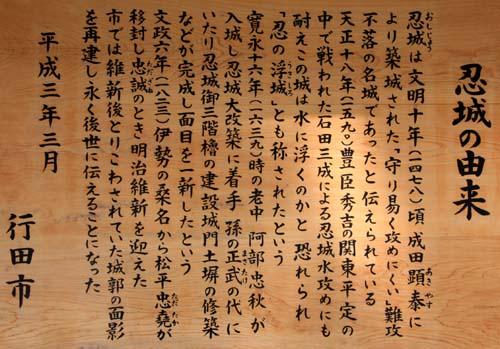 忍城の由来
忍城は文明十年(一四七八)頃、成田顕泰に
おしじょう
あきやす
より築城された「守り易く攻めにくい」難攻
不落の名城であったと伝えられている
天正十八年(一五九〇)豊臣秀吉の関東平定の
中で戦われた石田三成による忍城水攻めにも
耐えこの城は水に浮くのかと恐れられ
「忍の浮城」とも称されたという
うきしろ
寛永十六年(一六三九)時の老中 阿部忠秋が
入城し忍城大改築に着手 孫の正武の代に
まさたけ
いたり忍城御三階櫓の建設城門土塀の修築
などが完成し面目を一新したという
文政六年(一八二三)伊勢の桑名から松平忠堯が
ただたか
移封し忠誠のとき明治維新を迎えた
ただざね
市では維新後とりこわされていた城郭の面影
を再建し永く後世に伝えることになった
平成三年三月
行田市